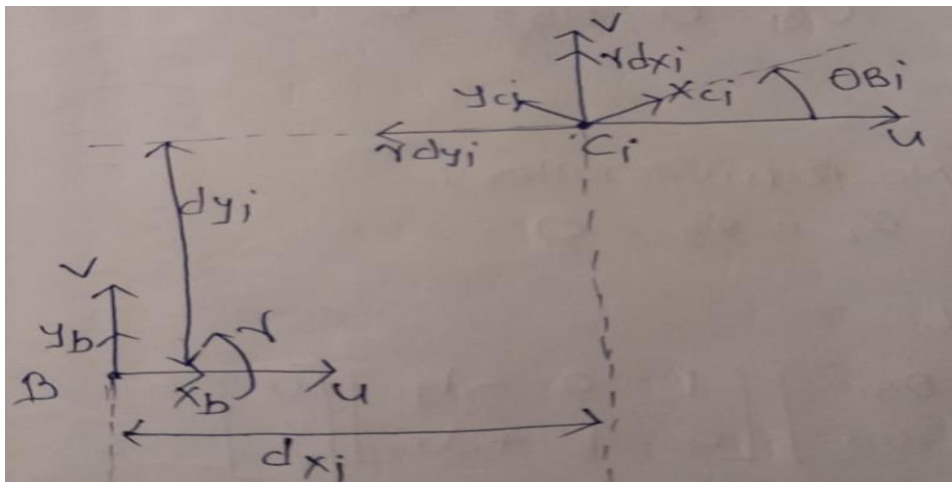 V
rdxi
yci
xci
θBi
rdyi
Ci
u
dyi
V
yb
r
B
xb
u
dxi